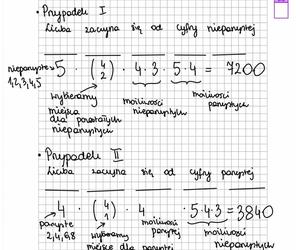 • Przypadek I
Liczba zaczyna się od cyfry nieparzystej
nieparzyste 5 · (4 2) · 4·3 · 5·4 = 7200
1,2,3,4,5
wybieramy miejsca dla pozostałych nieparzystych
możliwości nieparzystych
możliwości parzystych
• Przypadek II
Liczba zaczyna się od cyfry parzystej
4 · (4 1) · 4 · 5·4·3 = 3840
parzyste 2,4,6,8
wybieramy miejsce dla parzystej
możliwości parzystej
możliwości nieparzystych